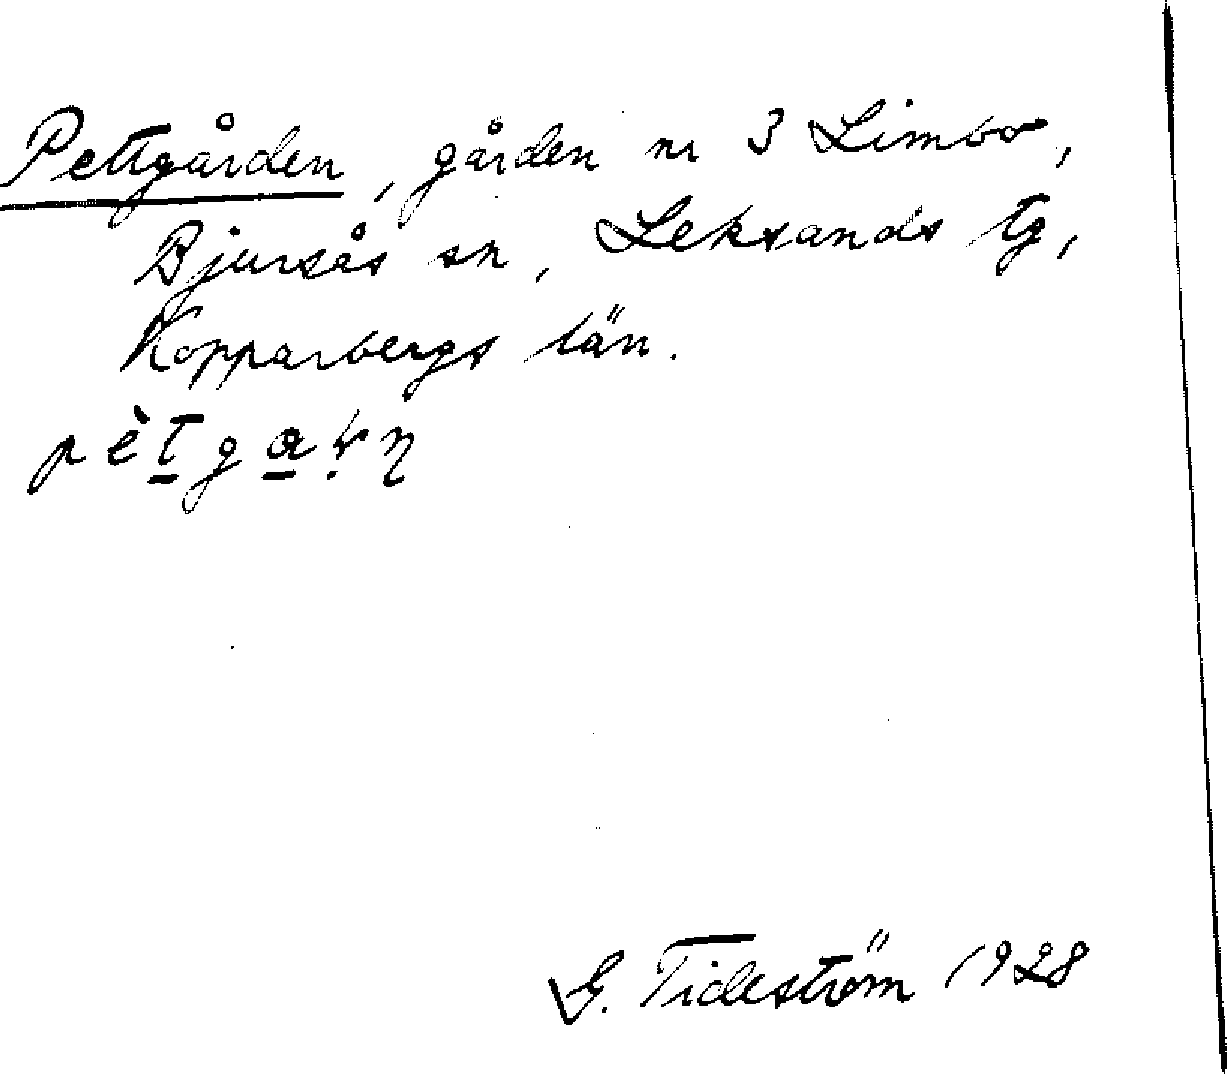 Pettgården, gården nr 3 Limbo,
Bjursås sn, Leksands tg,
Kopparbergs län.
pètgaṛṇ
G. Tideström 1928